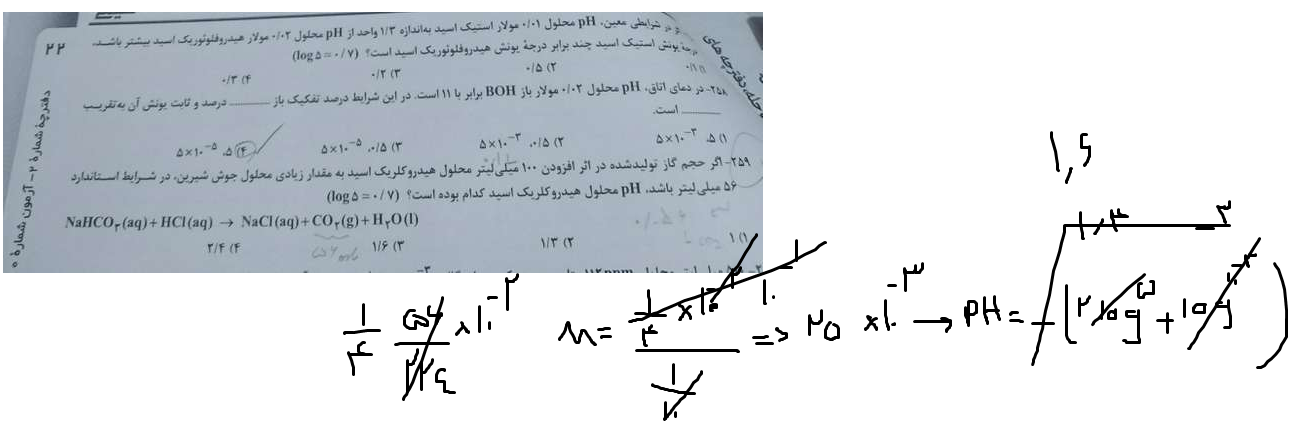 در شرایطی معین، pH محلول ۰/۰۱ مولار استیک اسید به‌اندازه ۱/۳ واحد از pH محلول ۰/۰۲ مولار هیدروفلوئوریک اسید بیشتر باشد،
درجهٔ یونش استیک اسید چند برابر درجهٔ یونش هیدروفلوئوریک اسید است؟ (log ۵ = ۰/۷)
۱) ۰/۱ ۲) ۰/۵ ۳) ۰/۲ ۴) ۰/۳
۲۵۸- در دمای اتاق، pH محلول ۰/۰۲ مولار باز BOH برابر با ۱۱ است. در این شرایط درصد تفکیک باز ........ درصد و ثابت یونش آن به‌تقریب
........ است.
۱) ۵، ۵×۱۰^-۳ ۲) ۰/۵، ۵×۱۰^-۳ ۳) ۰/۵، ۵×۱۰^-۵ ۴) ۵، ۵×۱۰^-۵
۲۵۹- اگر حجم گاز تولیدشده در اثر افزودن ۱۰۰ میلی‌لیتر محلول هیدروکلریک اسید به مقدار زیادی محلول جوش شیرین، در شرایط استاندارد
۵۶ میلی‌لیتر باشد، pH محلول هیدروکلریک اسید کدام بوده است؟ (log ۵ = ۰/۷)
NaHCO۳(aq) + HCl(aq) → NaCl(aq) + CO۲(g) + H۲O(l)
۱) ۱ ۲) ۱/۳ ۳) ۱/۶ ۴) ۲/۴
۲۲
دفترچهٔ شمارهٔ ۲- آزمون شمارهٔ
۱,۶
۱,۴ -۳
۱/۴ ۵۶/۲۲۴ ×۱۰^-۲ n = ۱/۴ ×۱۰^-۲ ۱۰^-۱ / ۱/۱۰ => ۲۵ ×۱۰^-۳ → PH = -[۲log۵ + log۱۰^-۳)